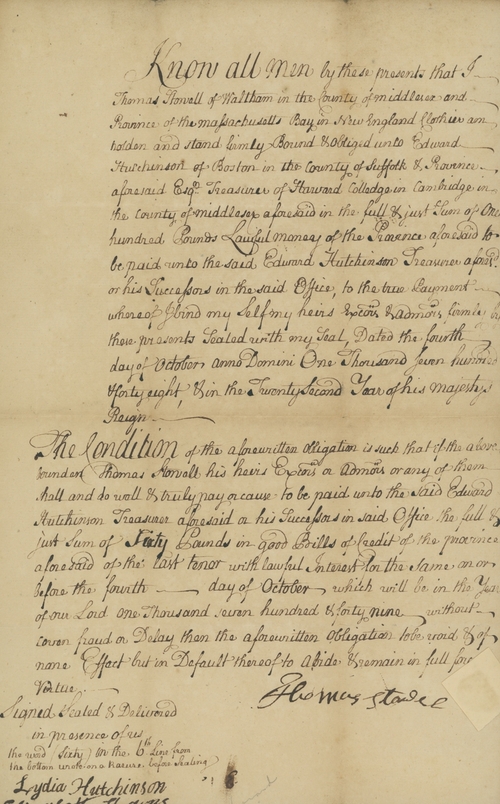 Know all men by these presents that I
Thomas Stowell of Waltham in the County of middlesex and
Province of the massachusetts Bay in New England Clothier am
holden and stand firmly Bound & obliged unto Edward
Hutchinson of Boston in the County of Suffolk & Province
aforesaid Esqr. Treasurer of Harvard Colledge in Cambridge in
the County of middlesex aforesaid in the full & just Sum of One
hundred Pounds Lawful money of the Province aforesaid to
be paid unto the said Edward Hutchinson Treasurer afores.d
or his Successors in the said Office, to the true Payment
whereof I bind my Self my heirs Execrs & admrs firmly by
these presents Sealed with my Seal, Dated the fourth
day of October anno Domini One Thousand Seven hundred
& forty eight, & in the Twenty Second Year of his majestys
Reign
The Condition of the aforewritten obligation is such that if the above
bounden Thomas Stowell his heirs Execrs or Admrs or any of them
shall and do well & truly pay or cause to be paid unto the said Edward
Hutchinson Treasurer aforesaid or his Successors in said Office the full &
just Sum of Sixty Pounds in good Bills of Credit of the province
aforesaid of the last tenor with lawful Interest for the same on or
before the fourth day of October which will be in the Year
of our Lord one Thousand seven hundred & forty nine without
coven fraud or Delay then the aforewritten Obligation to be void & of
none Effect but in Default thereof to Abide & remain in full force
Virtue.
Thomas Stowell
Signed Sealed & Delivered
in presence of us
the word (Sixty) in the 6th Line from
the bottom wrote on a Rasure before Sealing
Lydia Hutchinson